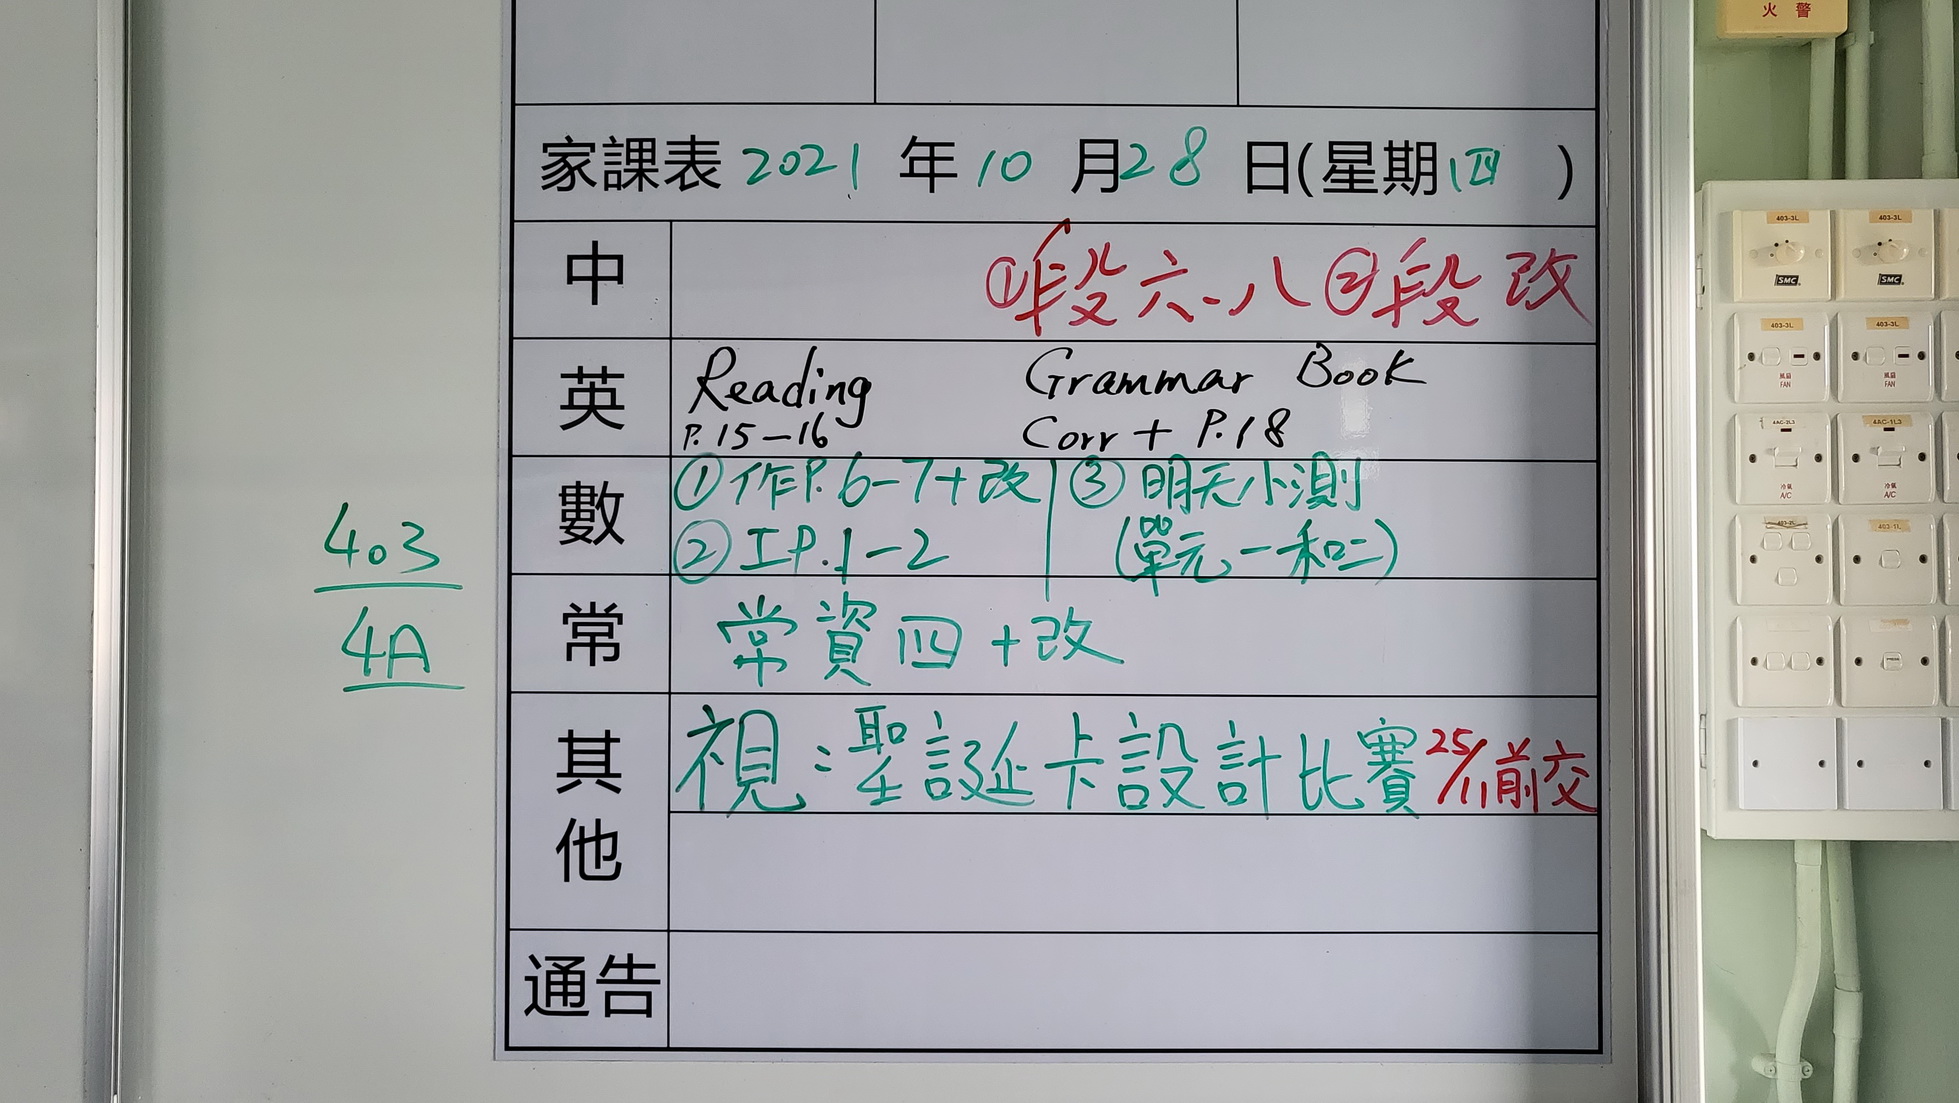 火 警
家課表 2021 年 10 月 28 日(星期四 )
中
①段六-八 ②段 改
英
Reading
P.15-16
Grammar Book
Corr + P.18
數
①作P.6-7+改
②工P.1-2
③明天小測
(單元一和二)
常
常資四+改
其他
視:聖誕卡設計比賽 25/11前交
通告
403
4A
403-3L
403-3L
SMC
SMC
403-3L
403-3L
風扇
FAN
風扇
FAN
4AC-1L3
冷氣
A/C
冷氣
A/C
403-1L